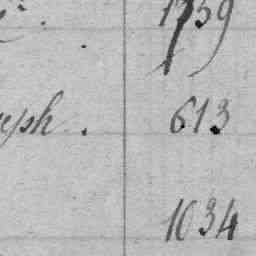 1759
eph. 613
1034